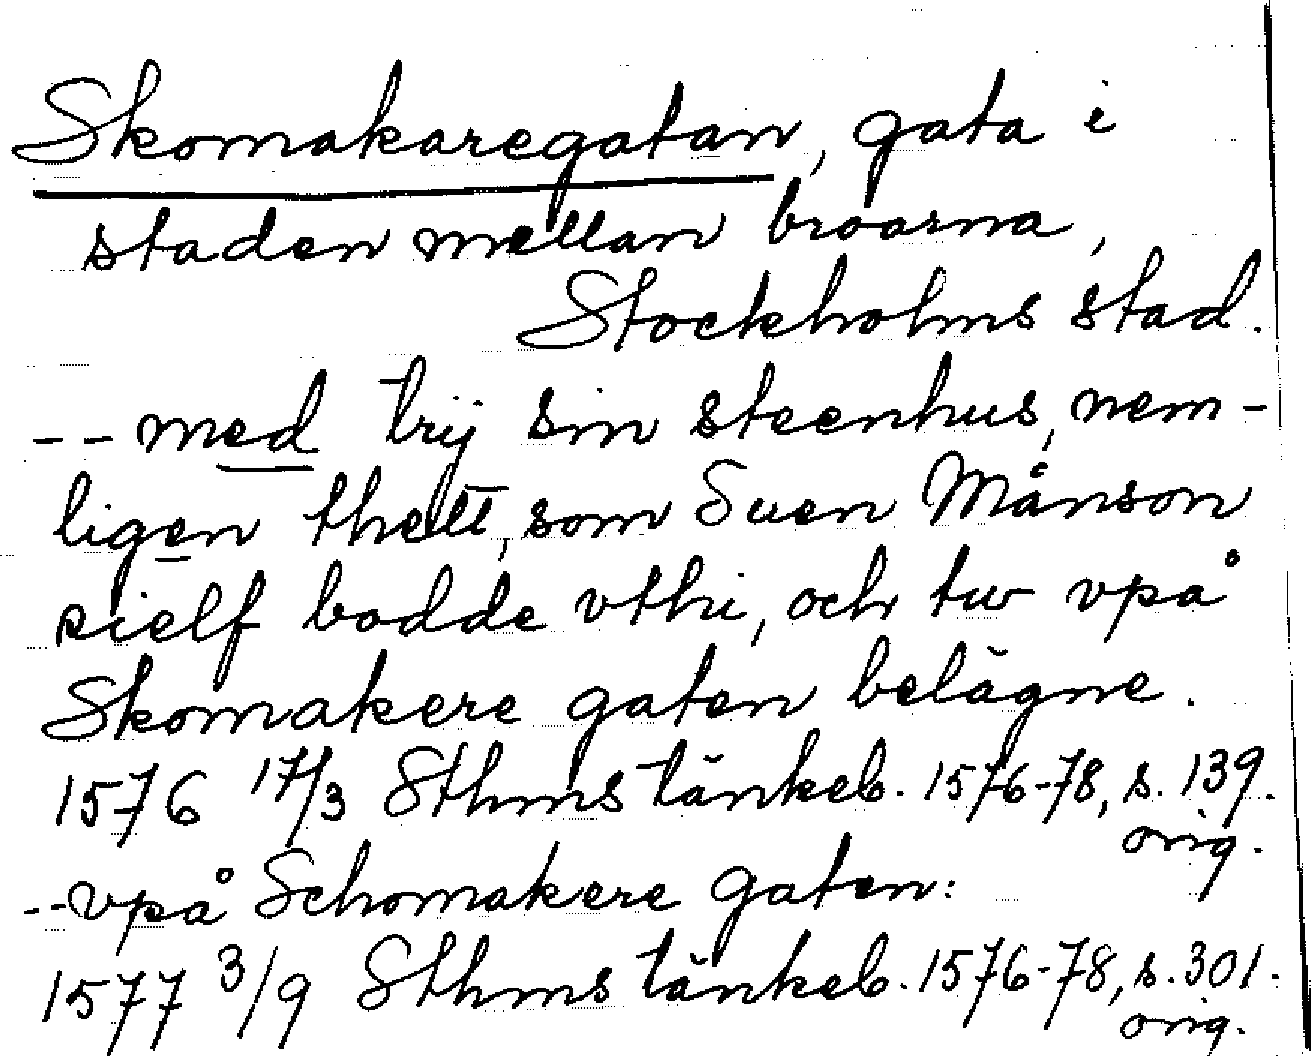 Skomakaregatan, gata i
staden mellan broarna,
Stockholms stad.
-- med trij sin steenhus, nem-
ligen thett, som Suen Månson
sielf bodde vthi, och tw vpå
Skomakere gaten belägne.
1576 17/3 Sthms tänkeb. 1576-78, s. 139.
orig.
-- vpå Schomakere gaten:
1577 3/9 Sthms tänkeb. 1576-78, s. 301.
orig.